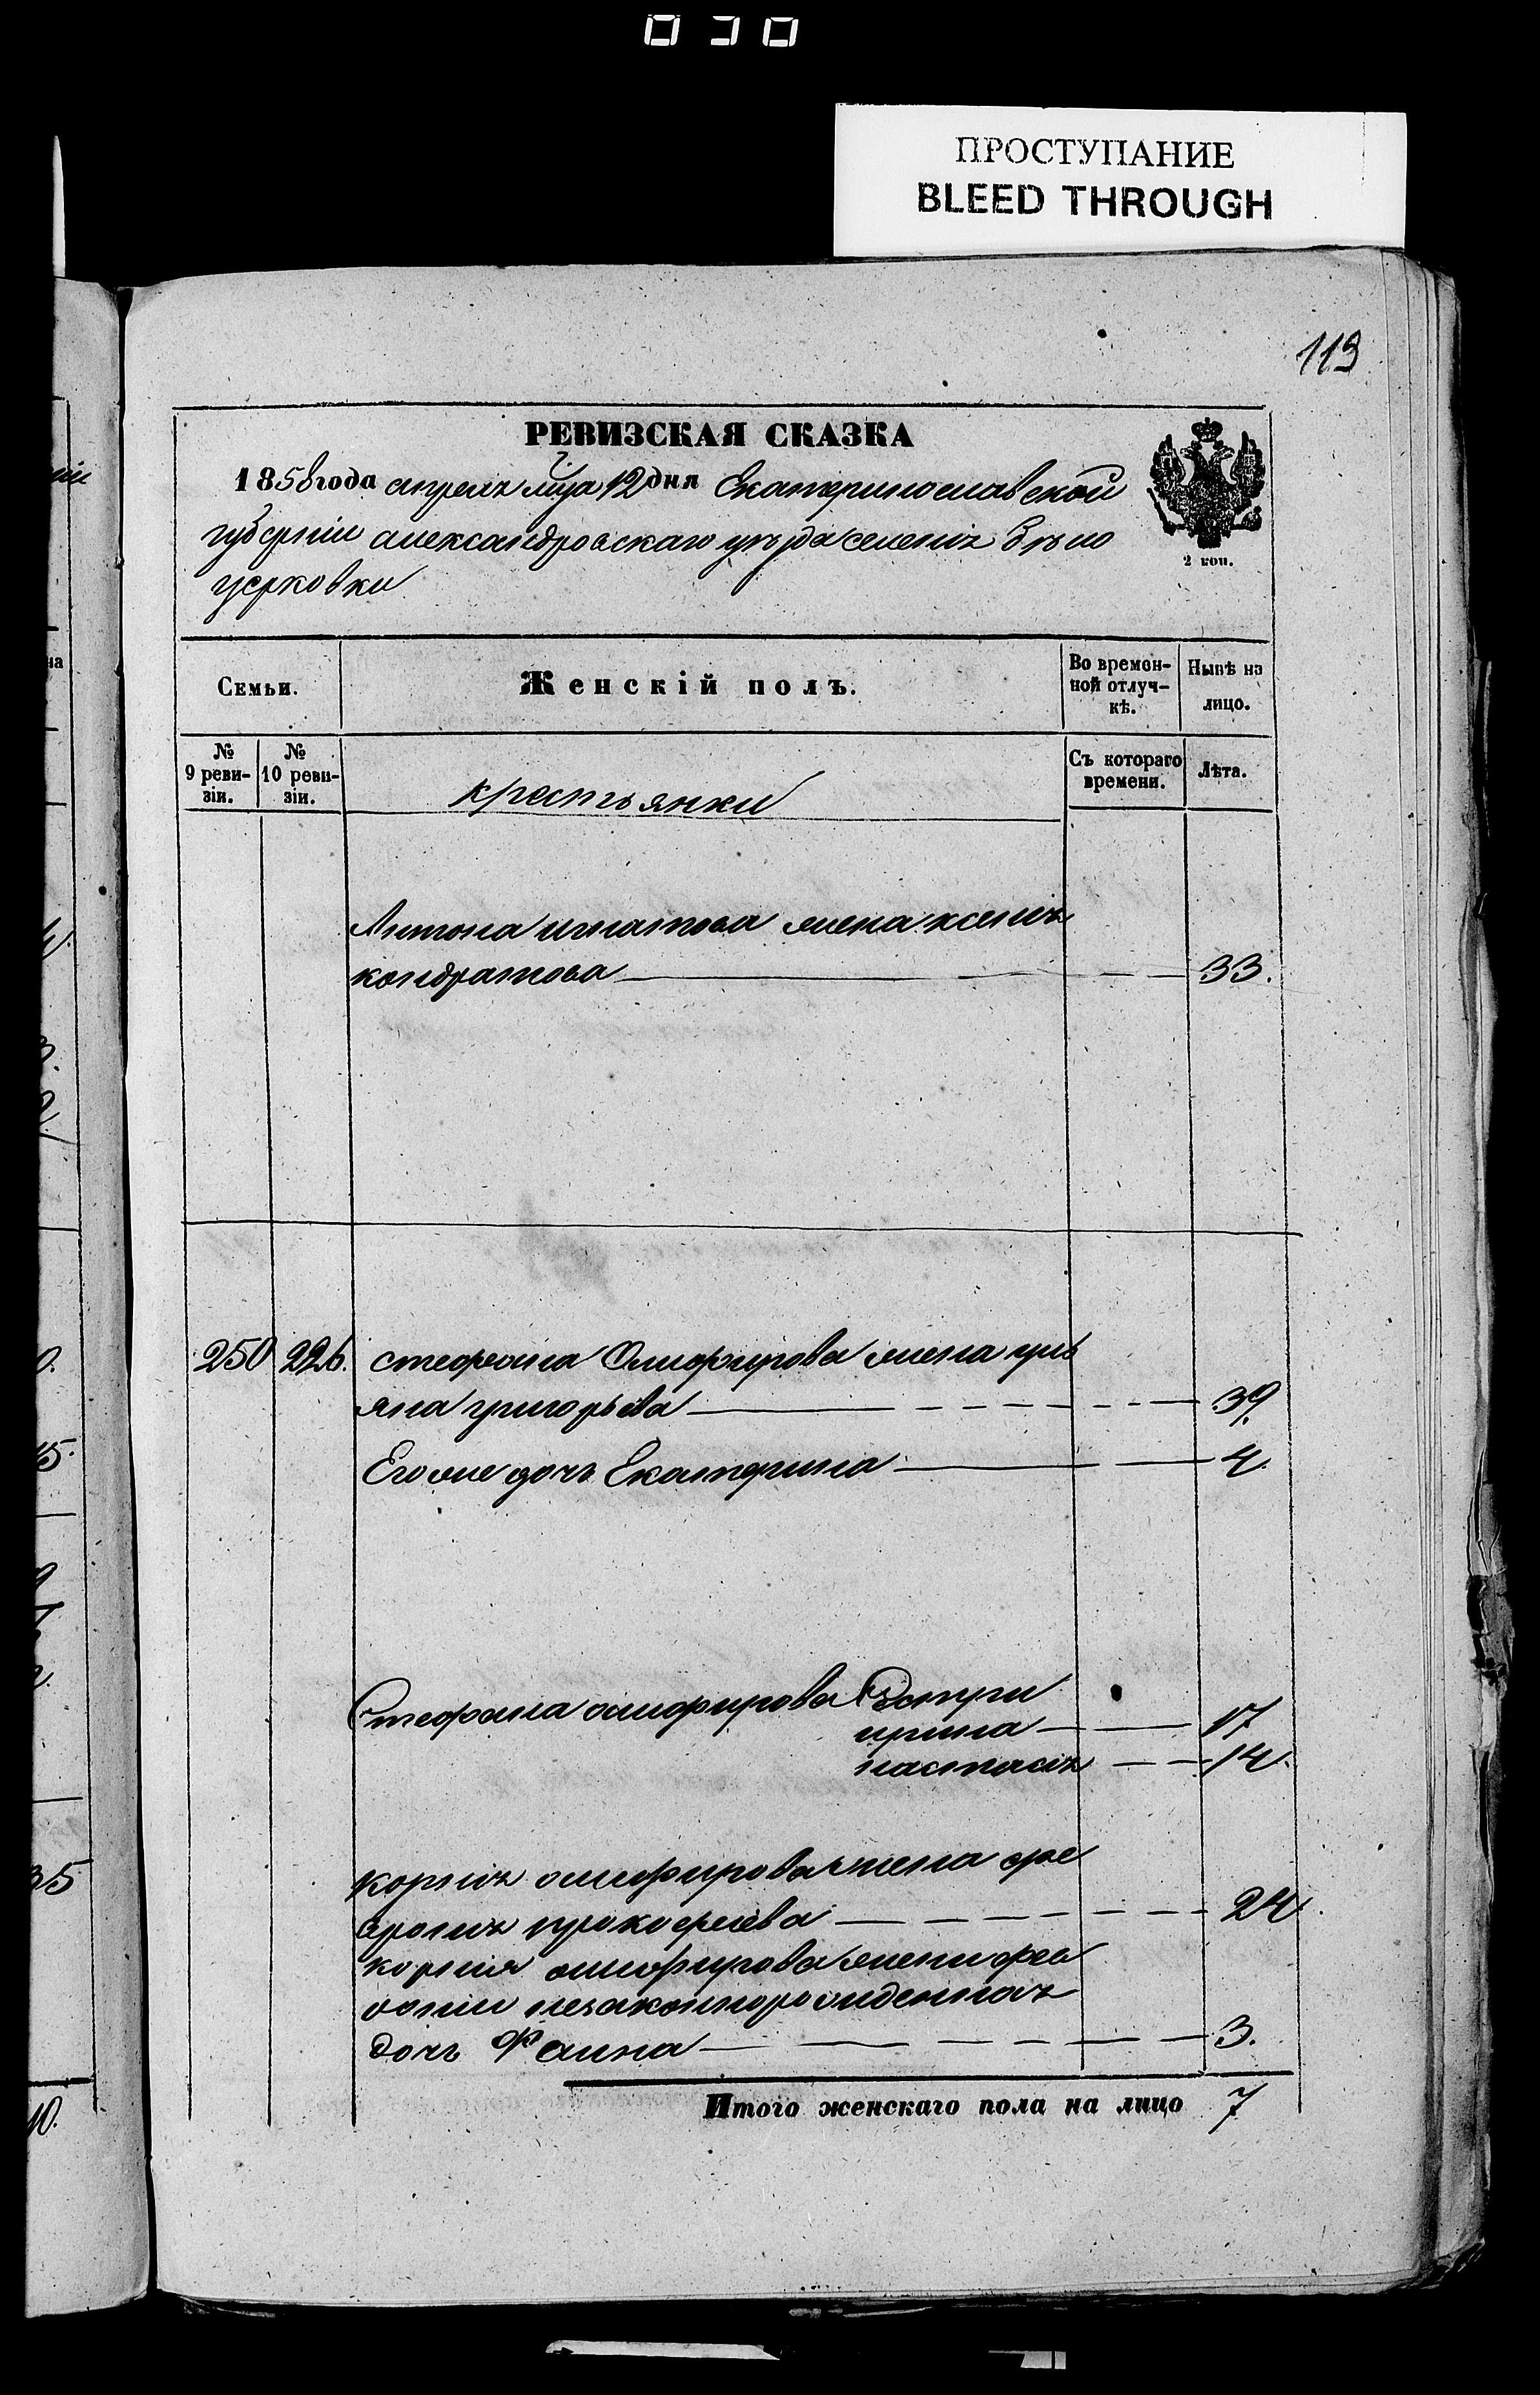 030
ПРОСТУПАНИЕ
BLEED THROUGH
113
РЕВИЗСКАЯ СКАЗКА
1858 года апреля мца 12 дня Екатеринославской
губерніи александровскаго уезда селенія Бѣло
церковки
2 коп.
Семьи.
Женскій полъ.
Во времен-
ной отлуч-
кѣ.
Нынѣ на
лицо.
№
9 реви-
зіи.
№
10 реви-
зіи.
крестьянки
Съ котораго
времени.
Лѣта.
Антона игнатова жена ксенія
кондратова 33.
250 226. стефана Олиферова жена уль
яна григорьева 39.
Его же дочь Екатерина 4.
Стефана олиферова Сестры
ирина 17
настасія 14.
корнія олиферова жена фе
вронія прокофіева 24.
корнія олиферова жены фев
роніи незаконнорожденная
дочь Фаина 3.
Итого женскаго пола на лицо 7